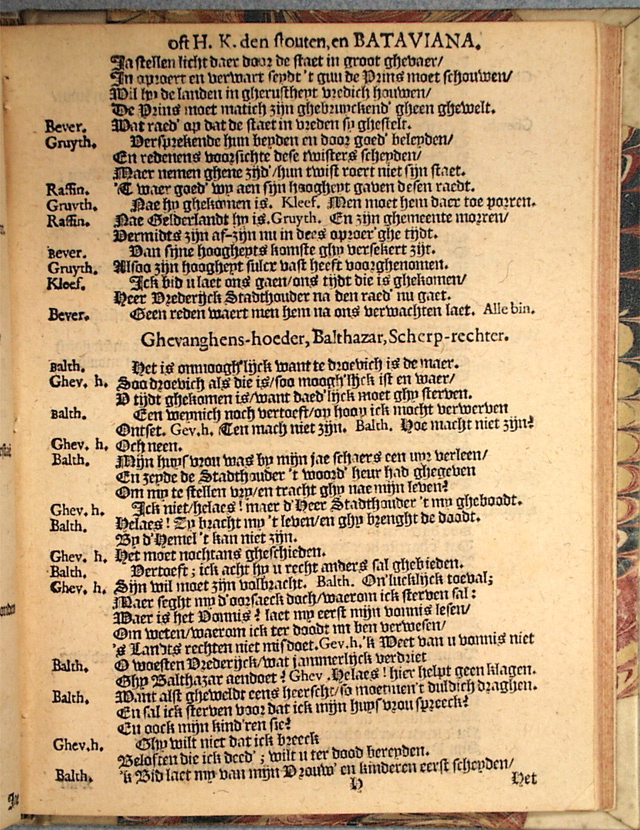 oft H. K. den stouten, en BATAVIANA.
Ja stellen licht daer door de staet in groot ghevaer/
In oproert en verwart seydt 't gun de Prins moet schouwen/
Wil hy de landen in gherustheyt vredich houwen/
De Prins moet matich zijn ghebruyckend' gheen ghewelt.
Bever. Wat raed' op dat de staet in vreden sy ghestelt.
Gruyth. Versprekende hun beyden en door goed' beleyden/
En redenens voorsichte dese twisters scheyden/
Maer nemen ghene zijd'/hun twist roert niet sijn staet.
Raffin. 'T waer goed' wy aen sijn hoogheyt gaven desen raedt.
Gruyth. Nae hy ghekomen is. Kleef. Men moet hem daer toe porren.
Raffin. Nae Gelderlandt hy is. Gruyth. En zijn ghemeente morren/
Vermidts zijn af-zijn nu in dees oproer'ghe tijdt.
Bever. Van sijne hoogheyts komste ghy versekert zijt.
Gruyth. Alsoo zijn hoogheyt sulcx vast heeft voorghenomen.
Kleef. Ick bid u laet ons gaen/ons tijdt die is ghekomen/
Heer Vrederijck Stadthouder na den raed' nu gaet.
Bever. Geen reden waert men hem na ons verwachten laet. Alle bin.
Ghevanghens-hoeder, Balthazar, Scherp-rechter.
Balth. Het is onmoogh'lijck want te droevich is de maer.
Ghev. h. Soo droevich als die is/soo moogh'lijck ist en waer/
V tijdt ghekomen is/want daed'lijck moet ghy sterven.
Balth. Een weynich noch vertoeft/op hoop ick mocht verwerven
Ontset. Gev. h. Ten mach niet zijn. Balth. Hoe macht niet zijn?
Ghev. h. Och neen.
Balth. Mijn huys vrou was by mijn jae schaers een uyr verleen/
En zeyde de Stadthouder 't woord' heur had ghegeven
Om my te stellen vry/en tracht ghy nae mijn leven?
Ghev. h. Ick niet/helaes! maer d'Heer Stadthouder 't my gheboodt.
Balth. Helaes! Zy bracht my 't leven/en ghy brenght de doodt.
By d'Hemel 't kan niet zijn.
Ghev. h. Het moet nochtans gheschieden.
Balth. Vertoeft; ick acht hy u recht anders sal ghebieden.
Ghev. h. Sijn wil moet zijn volbracht. Balth. On'lucklijck toeval;
Maer seght my d'oorsaeck doch/waerom ick sterven sal:
Waer is het Vonnis? laet my eerst mijn vonnis lesen/
Om weten/waerom ick ter doodt nu ben verwesen/
's Landts rechten niet misdoet. Gev. h. 'k Weet van u vonnis niet
Balth. O woesten Vrederijck/wat jammerlijck verdriet
Ghy Balthazar aendoet? Ghev. Helaes! hier helpt geen klagen.
Balth. Want alst gheweldt eens heerscht/so moetmen't duldich draghen.
En sal ick sterven voor dat ick mijn huys vrou spreeck?
En oock mijn kind'ren sie?
Ghev. h. Ghy wilt niet dat ick breeck
Beloften die ick deed'; wilt u ter dood bereyden.
Balth. 'k Bid laet my van mijn Vrouw' en kinderen eerst scheyden/
H Het